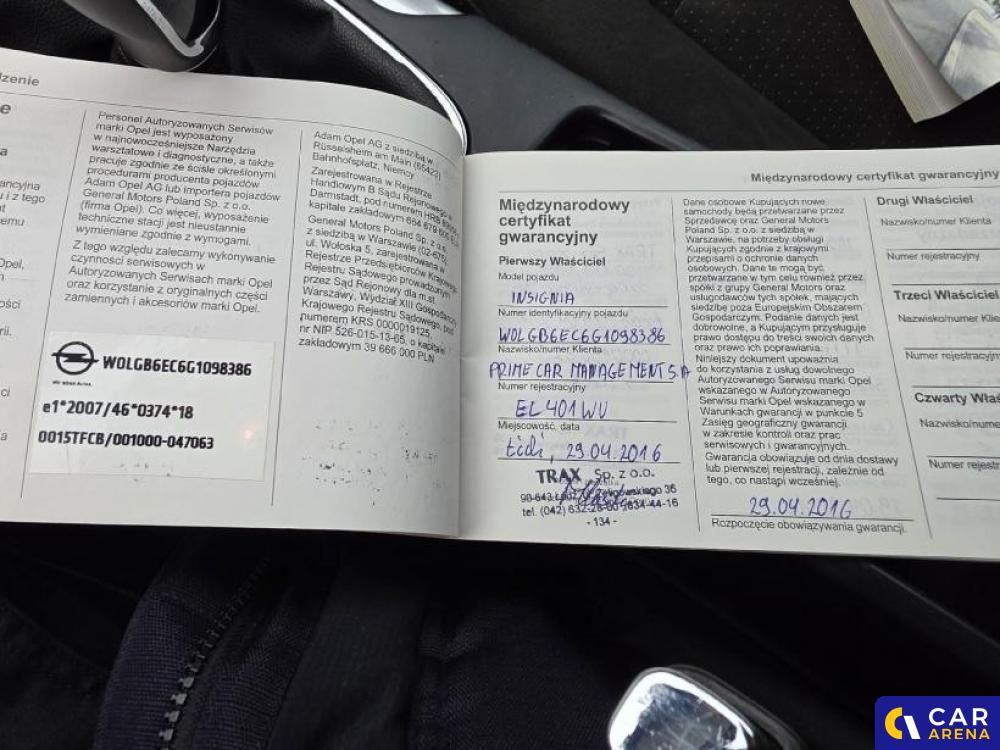 dzenie
e
a
ancyjna
u i z tego
emu
Opel,
ości
rii.
ci
a
Personel Autoryzowanych Serwisów
marki Opel jest wyposażony
w najnowocześniejsze Narzędzia
warsztatowe i diagnostyczne, a także
pracuje zgodnie ze ściśle określonymi
procedurami producenta pojazdów
Adam Opel AG lub importera pojazdów
General Motors Poland Sp. z o.o.
(firma Opel). Co więcej, wyposażenie
techniczne stacji jest nieustannie
wymieniane zgodnie z wymogami.
Z tego względu zalecamy wykonywanie
czynności serwisowych w
Autoryzowanych Serwisach marki Opel
oraz korzystanie z oryginalnych części
zamiennych i akcesoriów marki Opel.
W0LGB6EC6G1098386
Wir leben Autos.
e1*2007/46*0374*18
0015TFCB/001000-047063
Adam Opel AG z siedzibą w
Rüsselsheim am Main (65423)
Bahnhofsplatz, Niemcy
Zarejestrowana w Rejestrze
Handlowym B Sądu Rejonowego w
Darmstadt, pod numerem HRB
kapitale zakładowym 664 679
General Motors Poland Sp. z o.o.
z siedzibą w Warszawie (02-675),
ul. Wołoska 5, zarejestrowana w
Rejestrze Przedsiębiorców Krajowego
Rejestru Sądowego prowadzonym
przez Sąd Rejonowy dla m.st.
Warszawy, Wydział XIII Gospodarczy
Krajowego Rejestru Sądowego, pod
numerem KRS 0000019125,
nr NIP 526-015-13-65, o kapitale
zakładowym 39 666 000 PLN
Międzynarodowy certyfikat gwarancyjny
Międzynarodowy
certyfikat
gwarancyjny
Pierwszy Właściciel
Model pojazdu
INSIGNIA
Numer identyfikacyjny pojazdu
W0LGB6EC6G1098386
Nazwisko/numer Klienta
PRIME CAR MANAGEMENT S.A
Numer rejestracyjny
EL 401WU
Miejscowość, data
Łódź, 29.04.2016
TRAX Sp. z o.o.
90-643 Łódź, ul. Żeligowskiego 36
tel. (042) 632-28-60, 634-44-16
- 134 -
Dane osobowe Kupujących nowe
samochody będą przetwarzane przez
Sprzedawcę oraz General Motors
Poland Sp. z o.o. z siedzibą w
Warszawie, na potrzeby obsługi
Kupujących zgodnie z krajowymi
przepisami o ochronie danych
osobowych. Dane te mogą być
przetwarzane w tym celu również przez
spółki z grupy General Motors oraz
usługodawców tych spółek, mających
siedzibę poza Europejskim Obszarem
Gospodarczym. Podanie danych jest
dobrowolne, a Kupującym przysługuje
prawo dostępu do treści swoich danych
oraz prawo ich poprawiania.
Niniejszy dokument upoważnia
do korzystania z usług dowolnego
Autoryzowanego Serwisu marki Opel
wskazanego w Autoryzowanego
Serwisu marki Opel wskazanego w
Warunkach gwarancji w punkcie 5
Zasięg geograficzny gwarancji
w zakresie kontroli oraz prac
serwisowych i gwarancyjnych.
Gwarancja obowiązuje od dnia dostawy
lub pierwszej rejestracji, zależnie od
tego, co nastąpi wcześniej.
29.04.2016
Rozpoczęcie obowiązywania gwarancji.
Drugi Właściciel
Nazwisko/numer Klienta
Numer rejestracyjny
Trzeci Właściciel
Nazwisko/numer Klie
Numer rejestracyjn
Czwarty Właś
Nazwisko/num
Numer rejest
CAR
ARENA